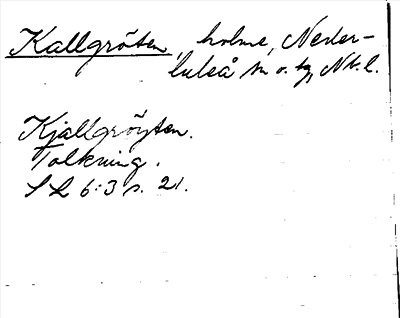 Kallgröten, holme, Neder-
luleå sn o. tg, Nb. l.
Kjallgröyten.
Tolkning.
S L 6:3 s. 21.